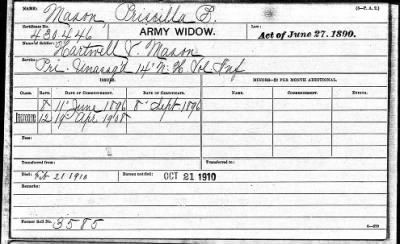 Mason Priscilla P. (3-P. A. T.)
Certificate No.
430.446 ARMY WIDOW. Law:
Act of June 27. 1890.
Name of Soldier:
Hartwell V. Mason
Service:
Pri. Unassg'd 14" N. H. Vol Inf
ISSUES. RECORD—$2 PER MONTH ADDITIONAL.
CLASS. RATE. DATE OF COMMENCEMENT. DATE OF CERTIFICATE. NAME. COMMENCEMENT. ENDING.
8 11" June 1896 8" Sept 1896
12 19" Apr 1908
Transferred from: Transferred to:
Died: Feb. 21 1910 Bureau notified: OCT 21 1910
Remarks:
Former Roll No. 3585